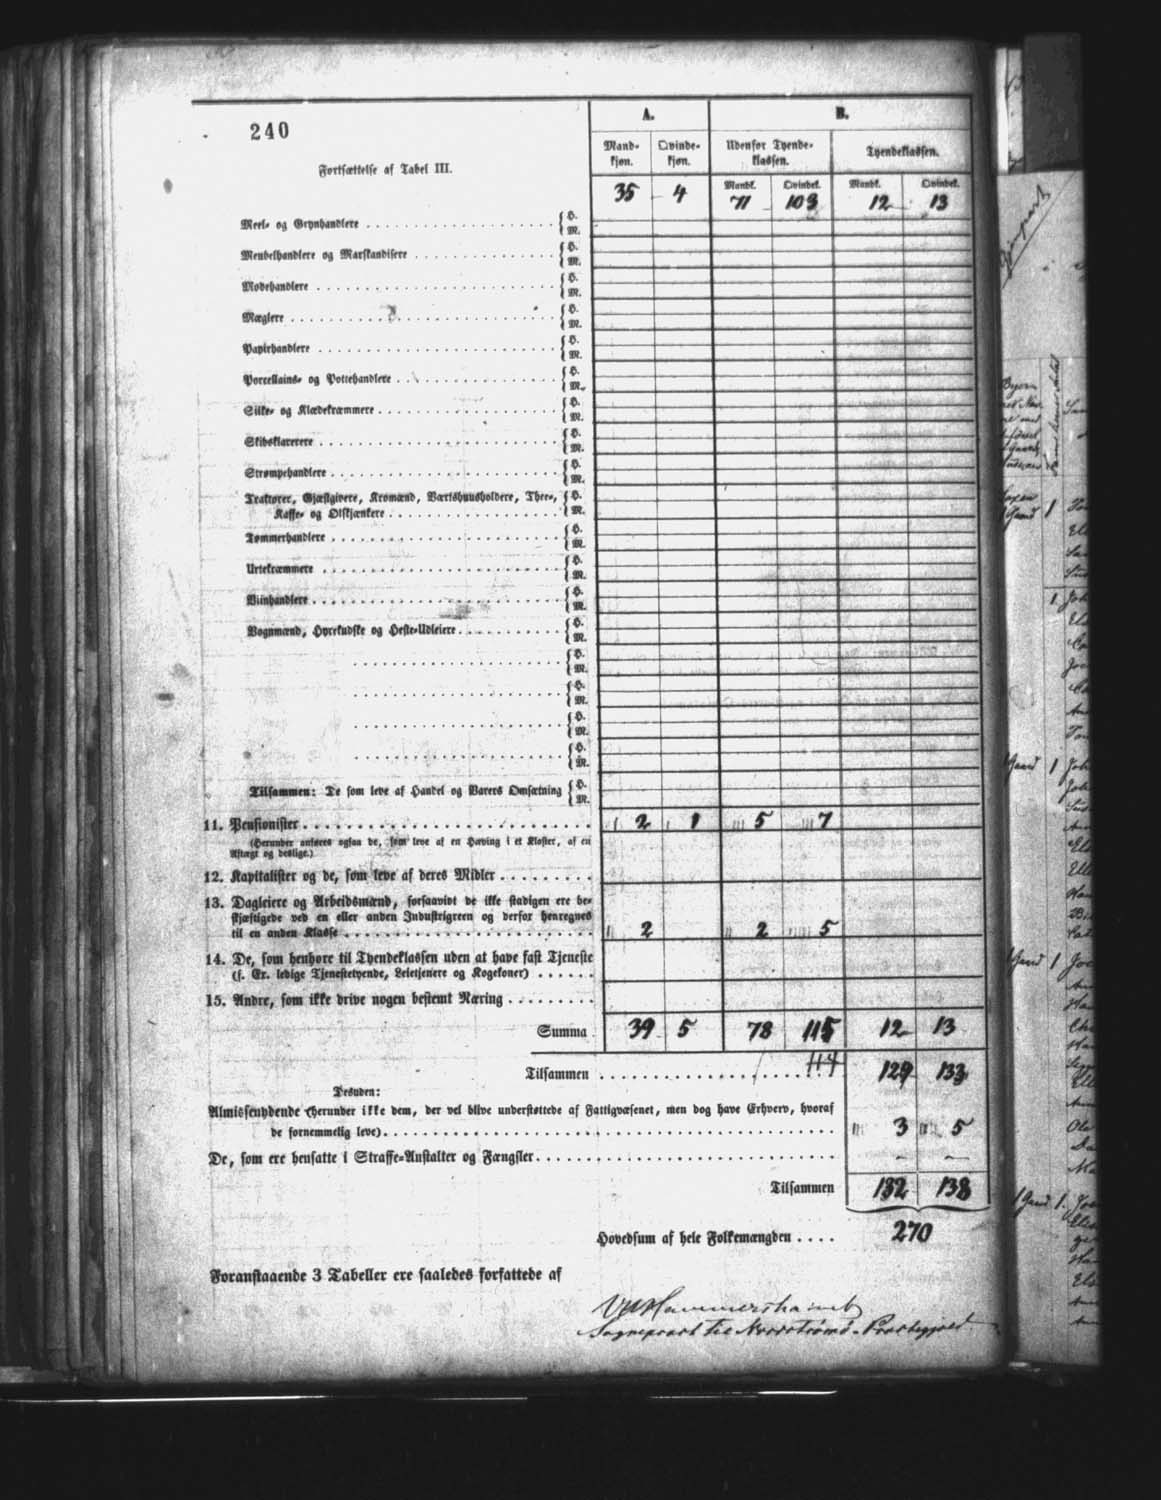 240
Fortsættelse af Tabel III.
A. B.
Mandkjøn. Qvindekjøn. Udenfor Tyendeklassen. Tyendeklassen.
Mandk. Qvindek. Mandk. Qvindek.
35 4 71 103 12 13
Meel- og Grynhandlere { H. M.
Meubelhandlere og Marskandisere { H. M.
Modehandlere { H. M.
Mæglere { H. M.
Papirhandlere { H. M.
Porcellains- og Pottehandlere { H. M.
Silke- og Klædekræmmere { H. M.
Skibsklarerere { H. M.
Strømpehandlere { H. M.
Traktører, Gjæstgivere, Kromænd, Værtshuusholdere, Thee-, { H.
Kaffe- og Ølskjænkere { M.
Tømmerhandlere { H. M.
Urtekræmmere { H. M.
Viinhandlere { H. M.
Vognmænd, Hyrekudske og Heste-Udleiere { H. M.
{ H. M.
{ H. M.
{ H. M.
{ H. M.
Tilsammen: De som leve af Handel og Varers Omsætning { H. M.
11. Pensionister 2 1 5 7
(Herunder anføres ogsaa de, som leve af en Hæving i et Kloster, af en
Aftægt og deslige.)
12. Kapitalister og de, som leve af deres Midler
13. Dagleiere og Arbeidsmænd, forsaavidt de ikke stadigen ere be-
skjæftigede ved en eller anden Industrigreen og derfor henregnes
til en anden Klasse 2 2 5
14. De, som henhøre til Tyendeklassen uden at have fast Tjeneste
(f. Ex. ledige Tjenestetyende, Leietjenere og Kogekoner)
15. Andre, som ikke drive nogen bestemt Næring
Summa 39 5 78 115 12 13
114
Tilsammen 129 133
Desuden:
Almissenydende (herunder ikke dem, der vel blive understøttede af Fattigvæsenet, men dog have Erhverv, hvoraf
de fornemmelig leve) 3 5
De, som ere hensatte i Straffe-Anstalter og Fængsler - -
Tilsammen 132 138
Hovedsum af hele Folkemængden 270
Foranstaaende 3 Tabeller ere saaledes forfattede af
VUHammershaimb
Sognepræst til Nordstrømø-Præstegjeld.